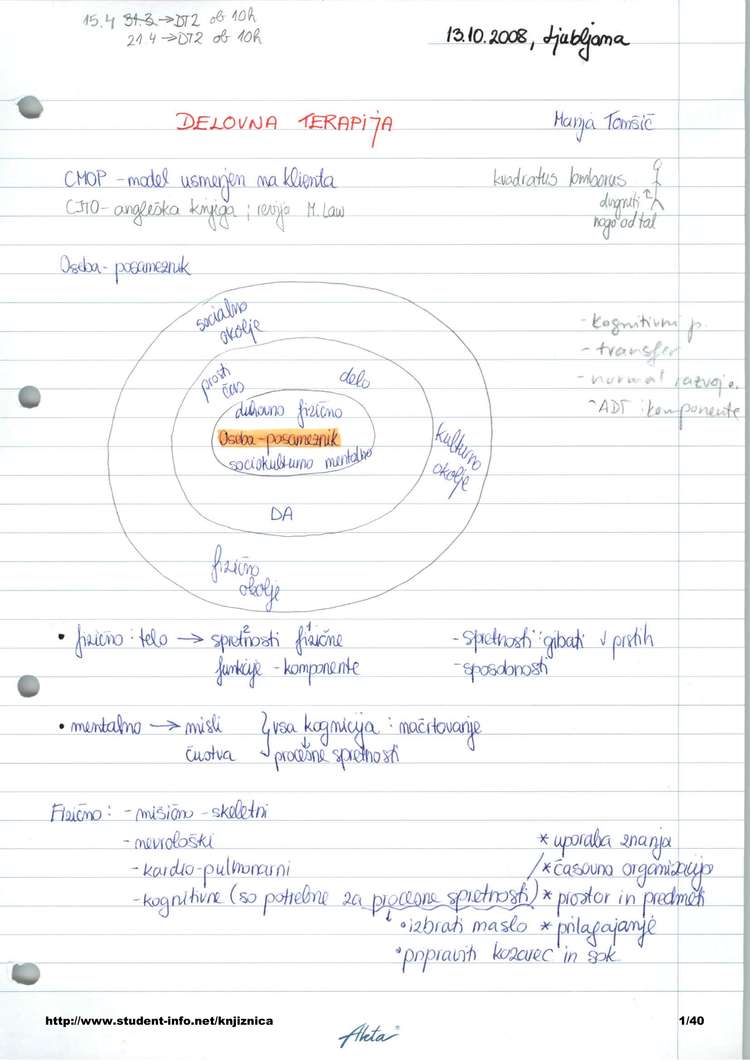 15.4 31.3 → DT2 ob 10h
21.4 → DT2 ob 10h
13.10.2008, Ljubljana
DELOVNA TERAPIJA
Manja Tomšič
CMOP - model usmerjen na klienta
kvadratus lomborus
CJTO - angleška knjiga ; revija M. Law
dvigniti
nogo od tal
Oseba - posameznik
socialno
okolje
- kognitivni p.
- transfer
- normal razvoj o.
ADT komponente
prosti
čas
delo
duhovno fizično
Oseba - posameznik
sociokulturno mentalno
kulturno
okolje
DA
fizično
okolje
• fizično : telo → spretnosti² fizične¹
- spretnosti : gibati v prstih
funkcije - komponente
- sposobnosti
• mentalno → misli } vsa kognicija : načrtovanje
čustva ↓ procesne spretnosti
Fizično : - mišično - skeletni
- nevrološki
* uporaba znanja
- kardio - pulmonarni
* časovna organizacija
- kognitivne (so potrebne za procesne spretnosti) * prostor in predmeti
• izbrati maslo * prilagajanje
• pripraviti kozarec in sok
http://www.student-info.net/knjiznica
1/40
Akta